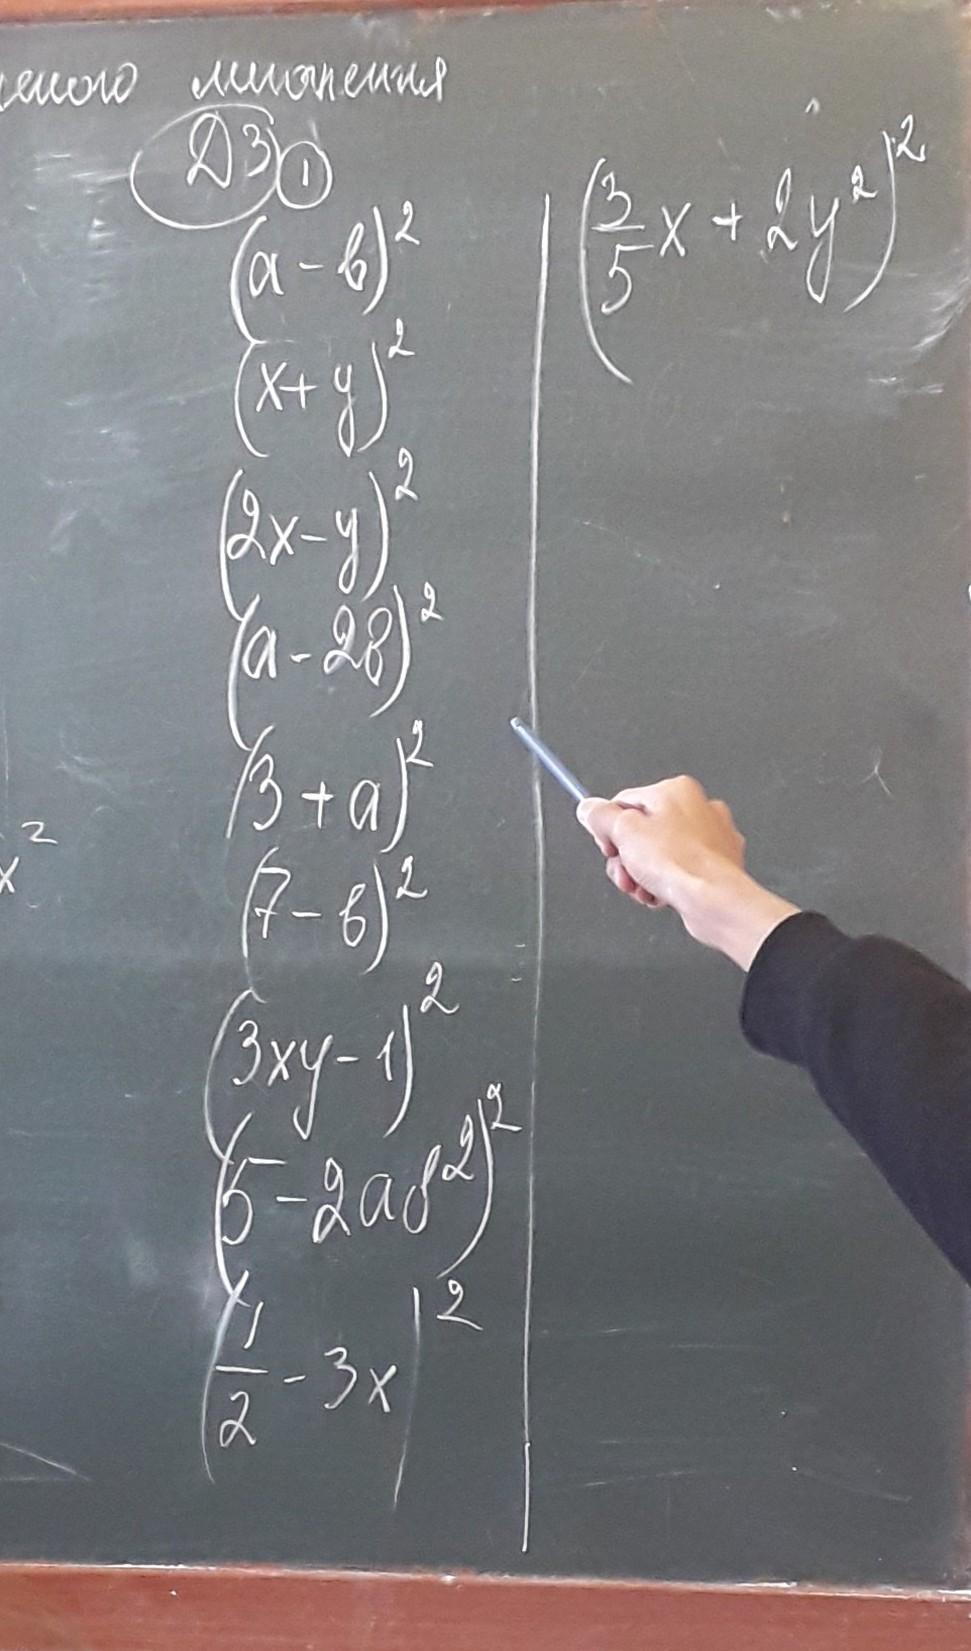 еного множения
ДЗ ①
(a - b)²
(x + y)²
(2x - y)²
(a - 2b)²
(3 + a)²
(7 - b)²
(3xy - 1)²
(5 - 2ab²)²
(1/2 - 3x)²
x²
(3/5 x + 2y²)²